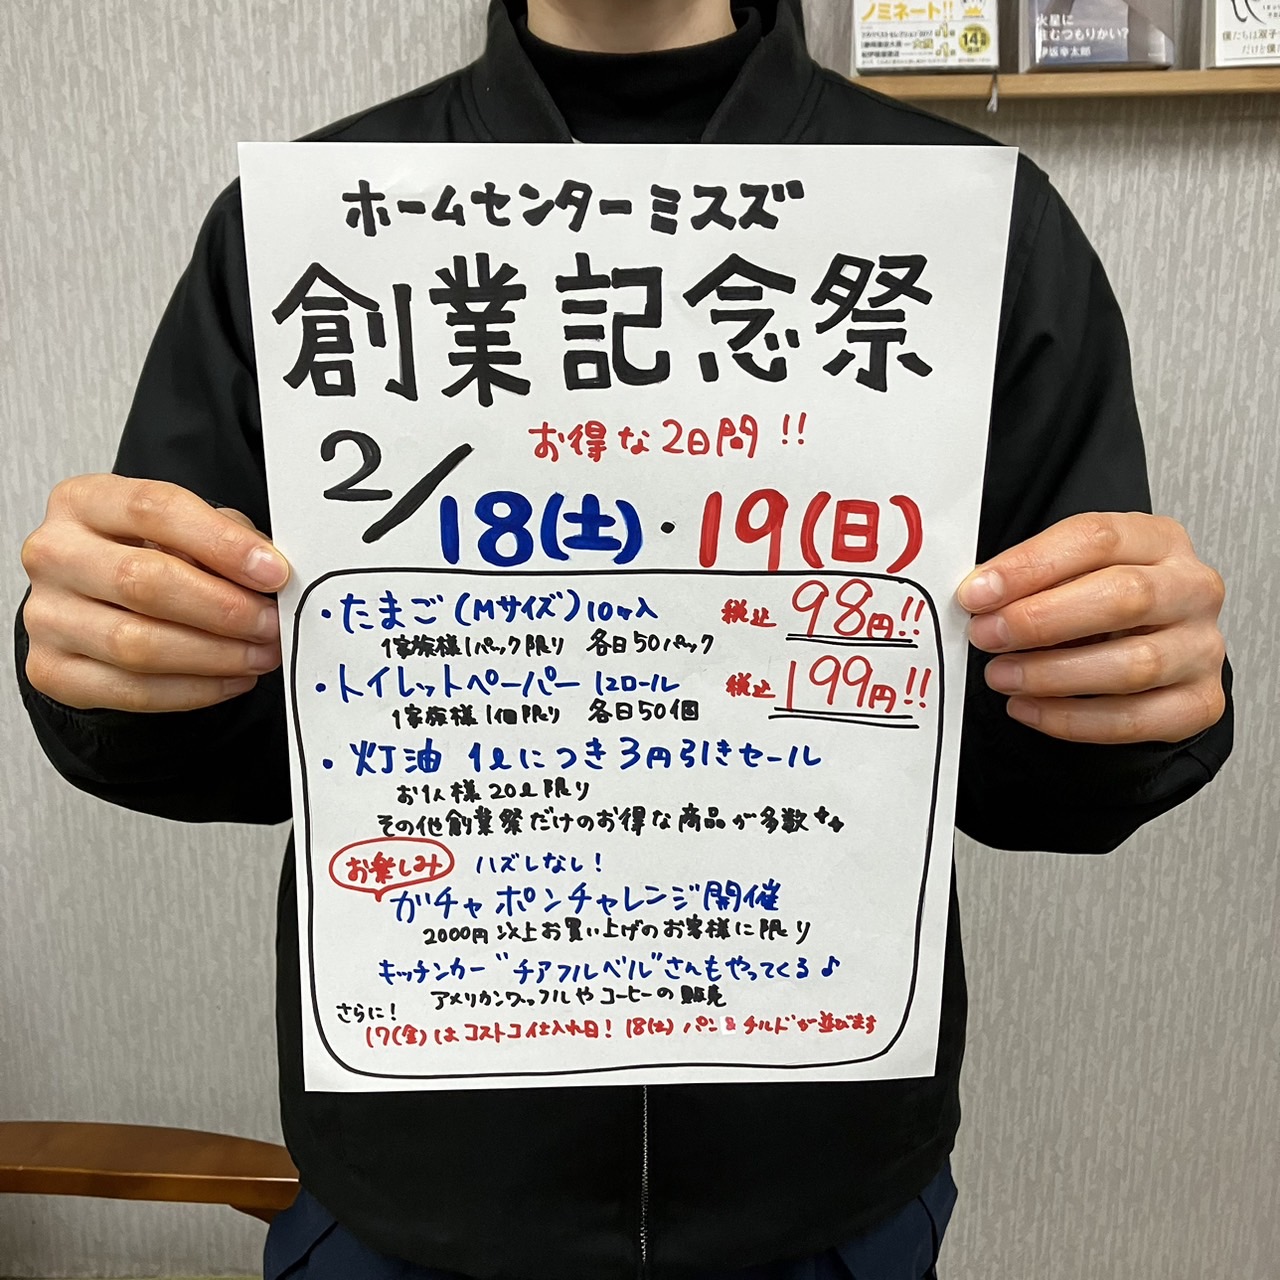 ノミネート!!
火星に
住むつもりかい?
伊坂幸太郎
僕たちは双子で
ホームセンターミスズ
創業記念祭
お得な2日間!!
2/18(土)・19(日)
・たまご(Mサイズ)10ヶ入 税込 98円!!
1家族様1パック限り 各日50パック
・トイレットペーパー 12ロール 税込 199円!!
1家族様1個限り 各日50個
・灯油 1ℓにつき3円引きセール
お1人様20ℓ限り
その他創業祭だけのお得な商品が多数
お楽しみ ハズレなし!
ガチャポンチャレンジ開催
2000円以上お買い上げのお客様に限り
キッチンカー"チアフルベル"さんもやってくる♪
アメリカンワッフルやコーヒーの販売
さらに!
17(金)はコストコ仕入れ日! 18(土) パン&チルドが並びます